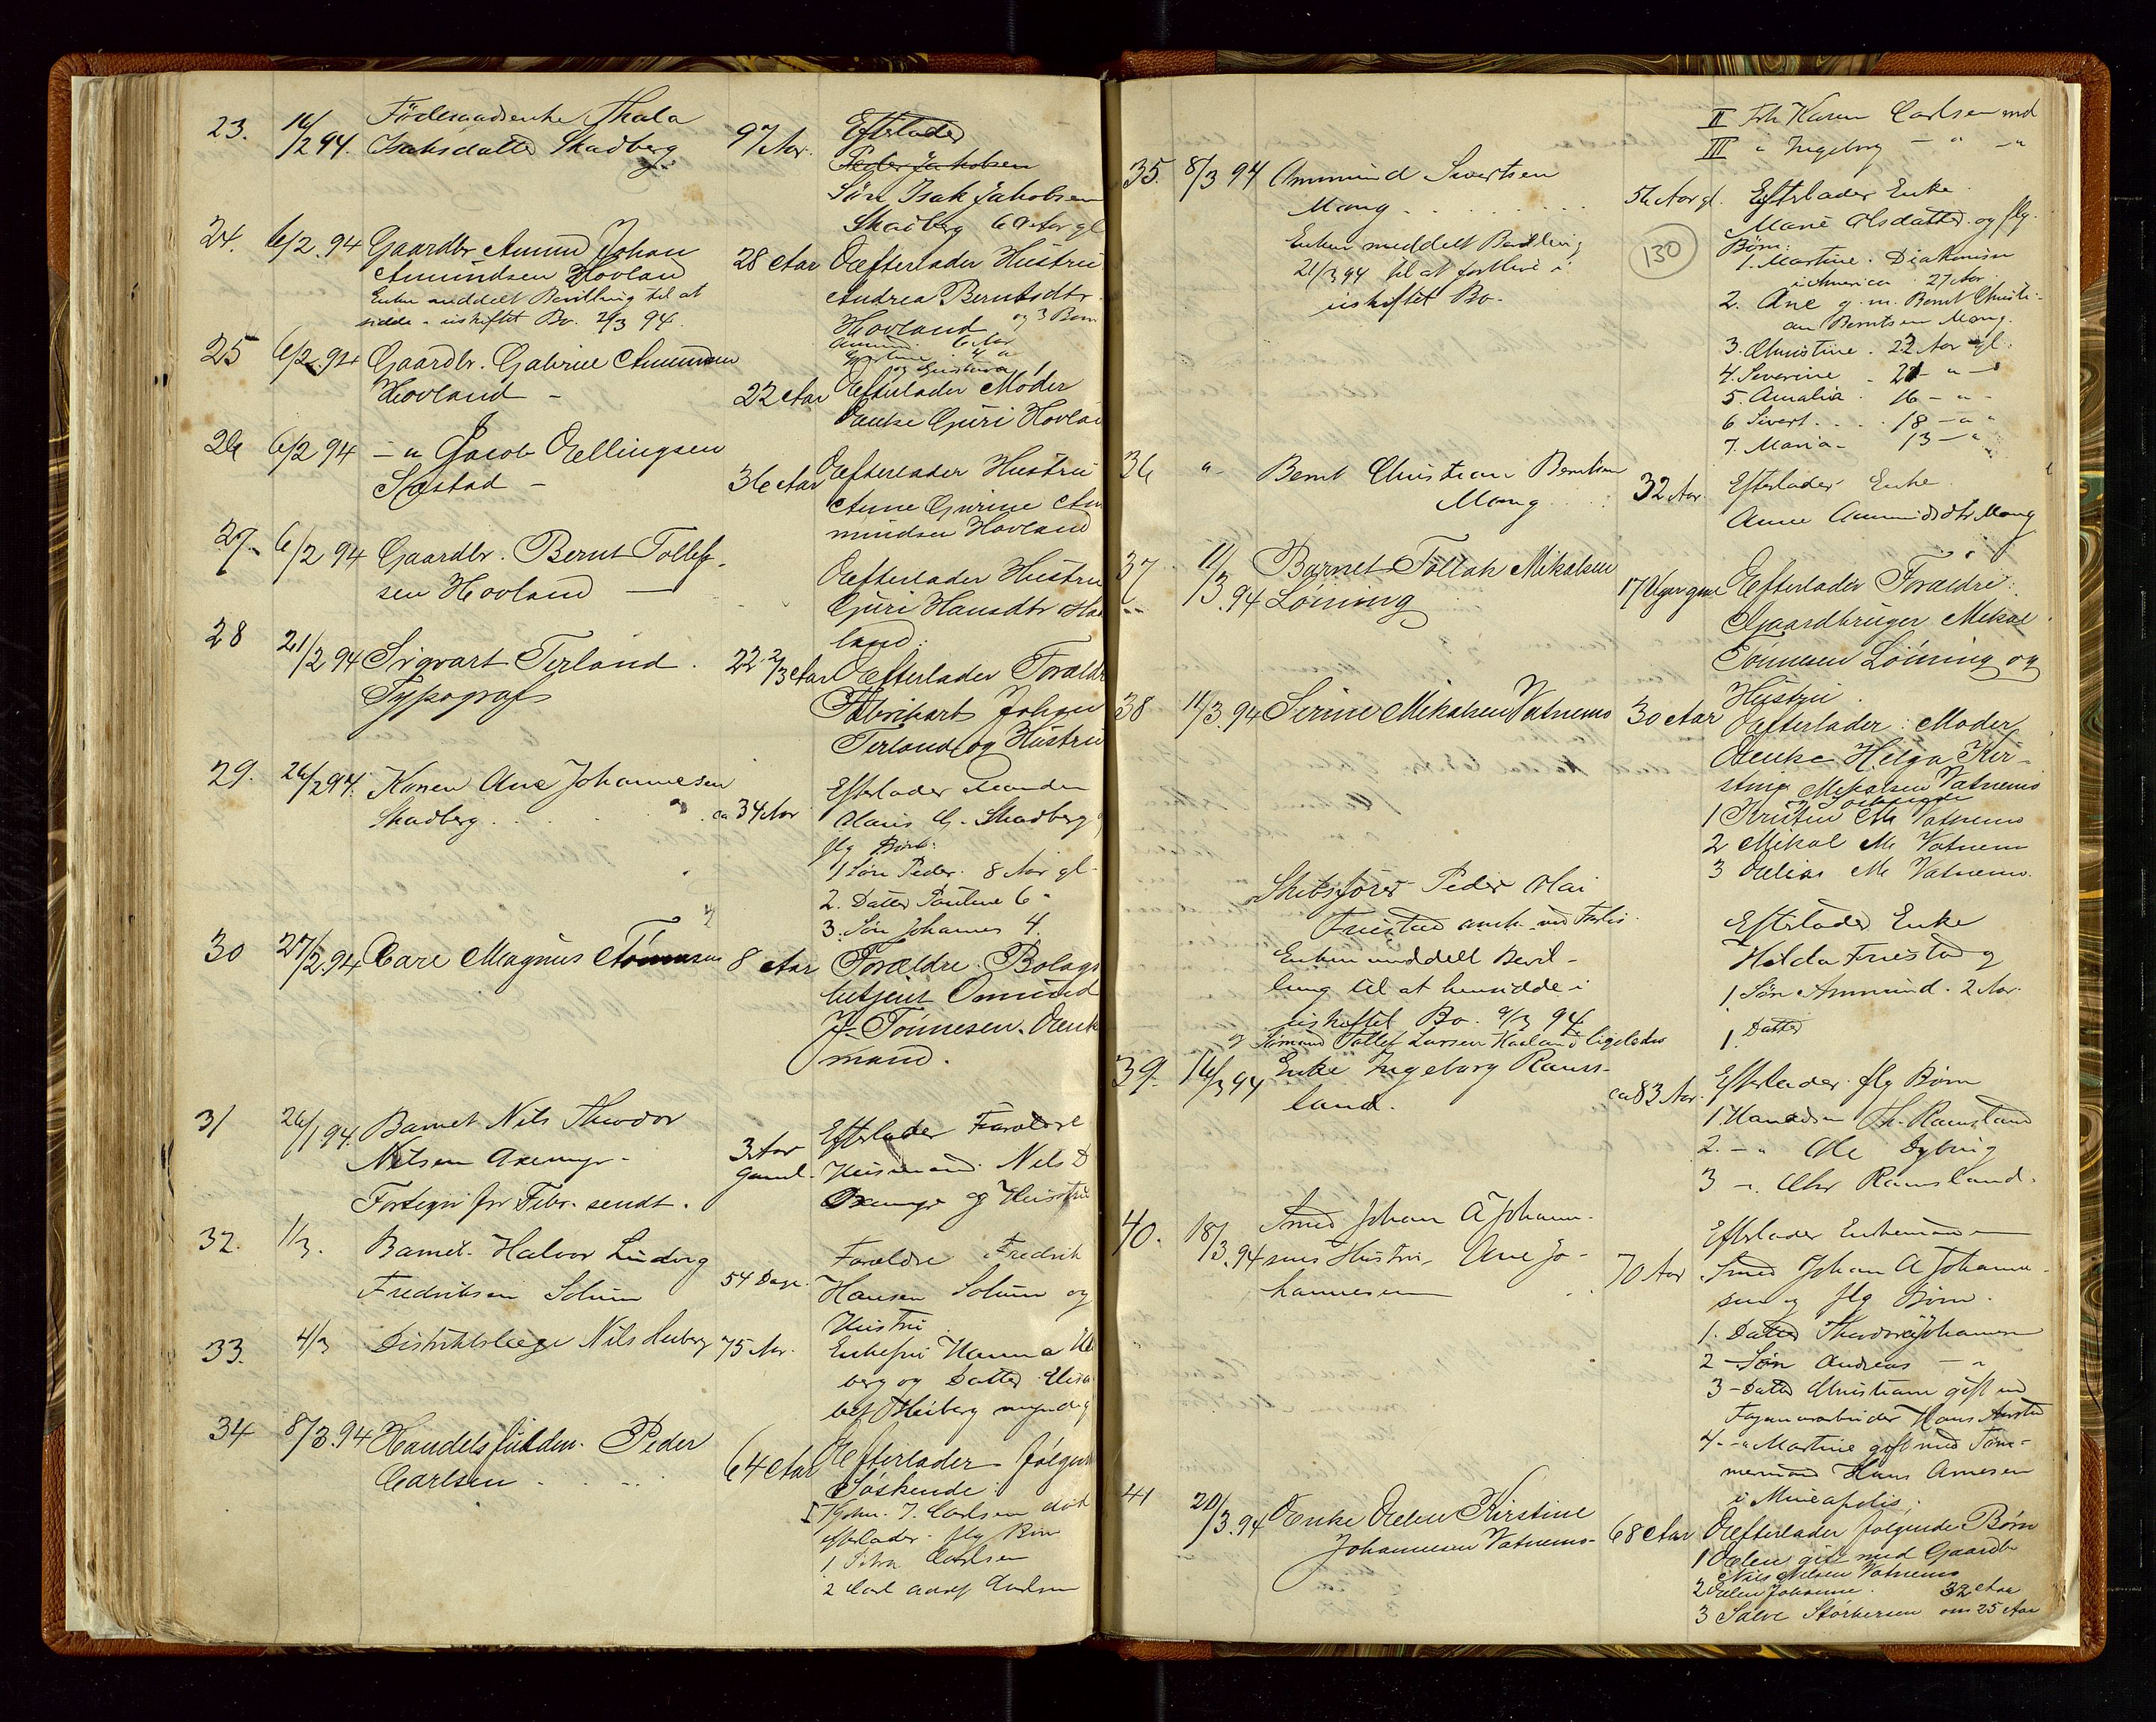 23. 16/2 94. Föderaadsenke Thala
Isaksdatter Skadberg 97 Aar. Efterlader
Peder Jakobsen
Søn Isak Jakobsen
Skadberg 60 Aar gl
24. 6/2.94 Gaardbr. Amund Johan
Amundsen Hovland 28 Aar Efterlader Hustru
Enken meddelt Bevilling til at
sidde i uskiftet Bo. 2/3 94.
Andrea Berntsdtr.
Hovland og 3 Børn
Amund 6 Aar
4 "
og
25 6/2.94 Gaardbr. Gabriel Amundsen
Hovland - 22 Aar Efterlader Moder
Enke Guri Hovland
26 6/2 94 - " Jacob Ellingsen
Sæstad - 36 Aar Efterlader Hustru
Anne Gurine Am
mundsen Hovland
27. 6/2 94 Gaardbr. Bernt Tollef-
sen Hovland - Efterlader Hustru
Guri Hansdtr Hov
land.
28 21/2 94 Sigvart Terland. 22 2/3 Aar Efterlader Foræld
Typograf
Johan
Terland og Hustru
29. 26/2 94. Konen Ane Johannesen
Skadberg. ca 34 Aar Efterlader Manden
G. Skadberg
flg Børn:
1 Søn Peder. 8 Aar gl.
2. Datter Pauline 6 "
3. Søn Johannes 4.
30 27/2.94 Carl Magnus Tønnesen 8 Aar Forældre. Bolags
betjent Omund
J. Tønnesen. Enke
mand.
31 26/1 94. Barnet Nils Theodor
Nilsen 3 Aar
gaml. Efterlader Forældre
Husmand Nils
og Hustru
Fortegn for Febr. sendt.
32. 1/3. Barnet Halvor Ludvig
Fredriksen Solum 54 Dage. Forældre Fredrik
Hansen Solum og
Hustru
33. 4/3 Distriktslæge Nils Heiberg 75 Aar. Enkefru Hanna Hei
berg og Datter Elisa
bet Heiberg myndig
34 8/3.94 Handelsfuldm. Peder
Carlsen 64 Aar Efterlader følgende
Søskende:
I Johan J. Carlsen død
efterlader flg Børn
1 Petra Carlsen
2 Carl Adolf Carlsen
II Frk Karen Carlsen md
III " Ingeborg - " - "
35. 8/3 94 Ammund Sivertsen
Mong 56 Aar gl. Efterlader Enke
Enken meddelt Bevilling
21/3 94 til at forblive i
uskiftet Bo.
130
Marie Olsdatter og flg.
Børn:
1. Martine. Diakonisse
i America 27 Aar
2. Ane g. m. Bernt Christi-
an Berntsen Mong.
3. Christine. 22 Aar gl.
4. Severine - 21 - " -
5. Amalia. 16 - " -
6 Sivert 18 - " "
7. Maria - 13 - "
36 " - Bernt Christian Berntsen
Mong 32 Aar. Efterlader Enke
Anne Ammundsdtr Mong
37 11/3.94 Barnet Tollak Mikalsen
Løining 17 Uger gml Efterlader Forældre:
Gaardbruger Mikal
Tønnesen Løining og
Hustru.
38 11/3.94 Serine Mikalsen Vatnemo 30 Aar Efterlader: Moder
Enke Helga Kir-
stine Mikalsen Vatnemo
og Søskende
1 Kristen M. Vatnemo
2 Mikal M. Vatnemo
3 Elias M. Vatnemo.
Skibsfører Peder Mai
Friestad anm.
Enken meddelt Bevil-
ling til at hensidde i
uskiftet Bo. 9/3 94
Efterlader Enke
Hilda Friestad og
1 Søn Ammund. 2 Aar.
1. Datter
og Sømand Tollef Larsen Havland ligeledes
39. 16/3 94 Enke Ingeborg Rams-
land. ca 83 Aar. Efterlader flg Børn
1. Th. Ramsland
2. - " Ole Dybing
3 - " Chr Ramsland.
40. 18/3.94 Smed Johan A Johann-
sens Hustru, Ane Jo-
hannesen 70 Aar Efterlader Enkemand
Smed Johan A Johann-
sen og flg Børn.
1. Datter Theodora Johannesen
2 - Søn Andreas - "
3 - Datter Christiane gift m
Hans
4. - " Martine gift med Tøm-
mermand Hans Arnesen
i Mineapolis.
41 20/3.94 Enke Elen Kirstine
Johannesen Vatnemo - 68 Aar Efterlader følgende Børn
1 Elen gift med Gaardb
Nils Nilsen Vatnemo
2 Elen Johanne. 32 Aar
3 Salve Størkersen om 25 Aar